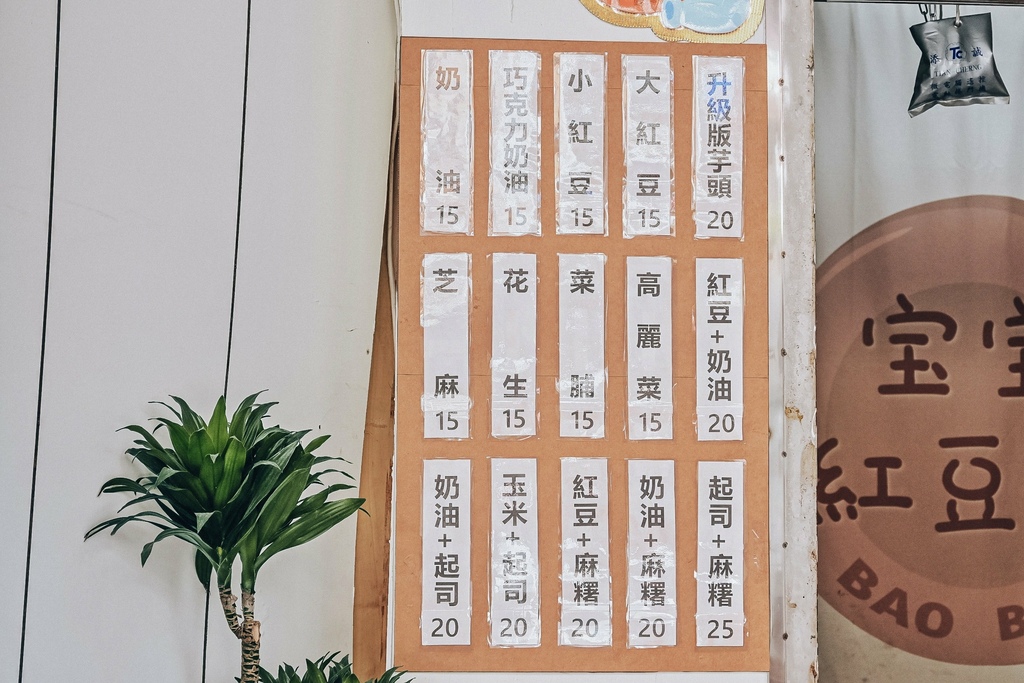 升級版芋頭 20
大紅豆 15
小紅豆 15
巧克力奶油 15
奶油 15
紅豆+奶油 20
高麗菜 15
菜脯 15
花生 15
芝麻 15
起司+麻糬 25
奶油+麻糬 20
紅豆+麻糬 20
玉米+起司 20
奶油+起司 20
宝
紅豆
BAO B
添 Tc 誠